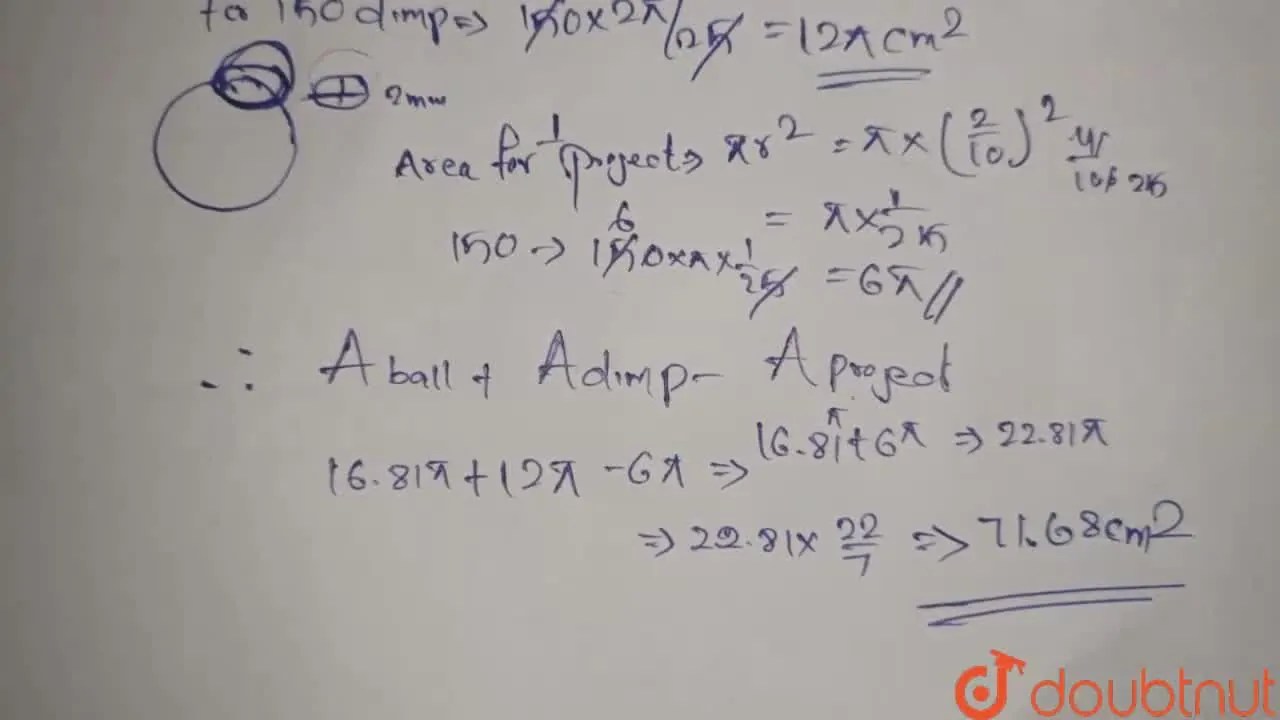 for 150 dimp ⇒ 150 × 2π/25 = 12π cm²
2mm
Area for 1 project ⇒ πr² = π × (2/10)² 4/100 25
= π × 1/25
150 → 150 × π × 1/25 = 6π //
6
∴ A ball + A dimp – A project
16.81π + 12π – 6π ⇒ 16.81π + 6π ⇒ 22.81π
⇒ 22.81 × 22/7 ⇒ 71.68 cm²
doubtnut